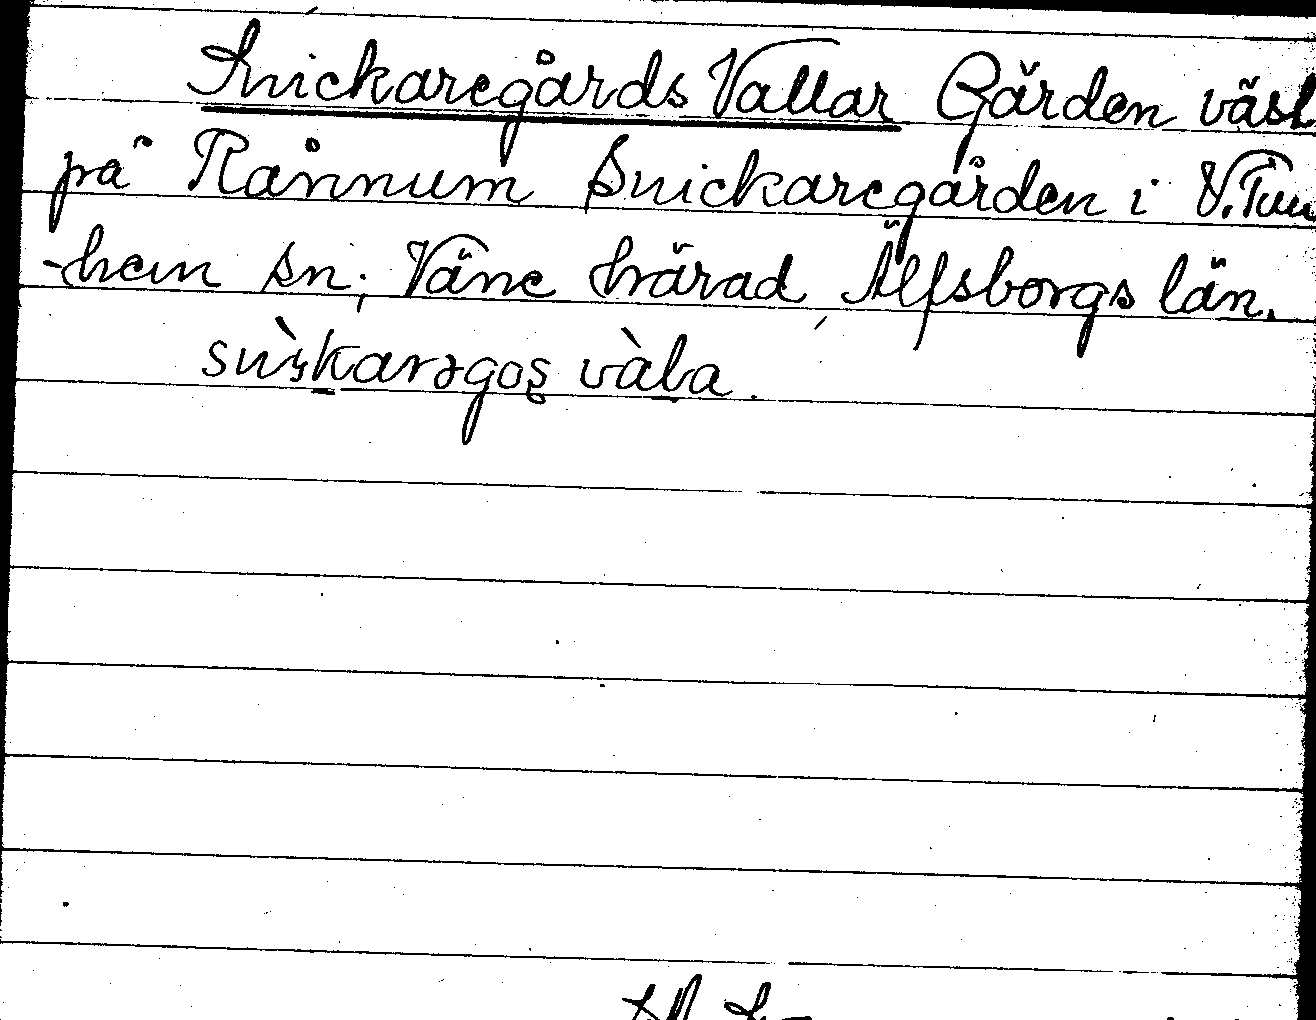 Snickaregårds Vallar Gärden väst
på Rånnum Snickaregården i V. Tun
-hem sn; Väne härad, Älfsborgs län.